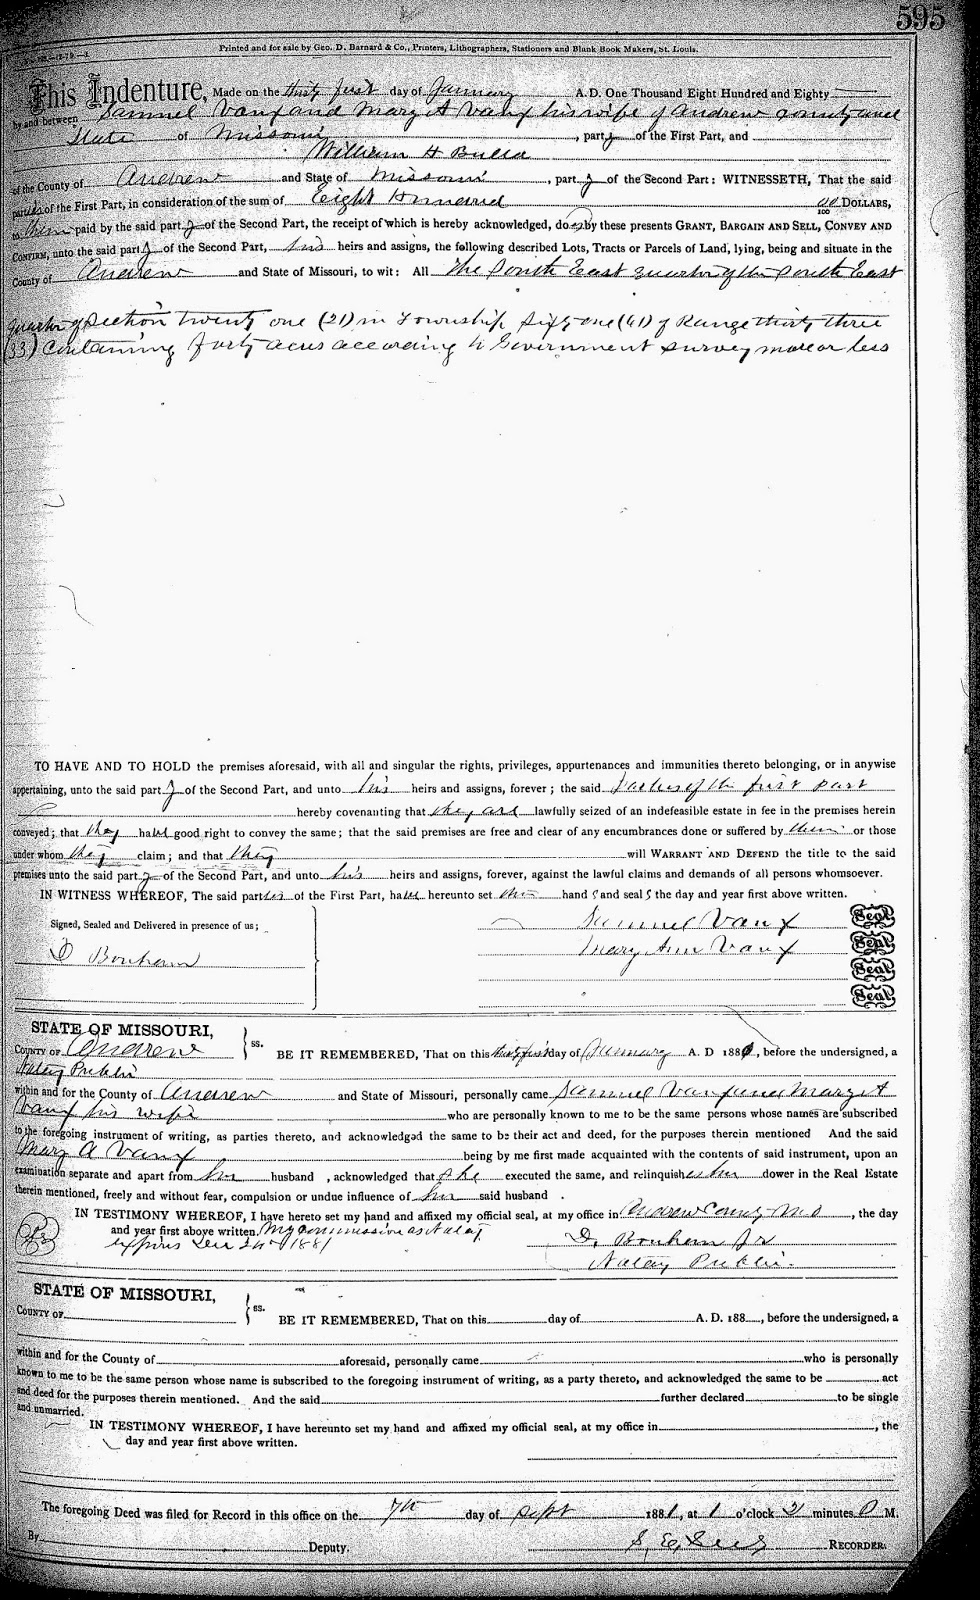 595
Printed and for sale by Geo. D. Barnard & Co., Printers, Lithographers, Stationers and Blank Book Makers, St. Louis.
This Indenture, Made on the thirty first day of January A.D. One Thousand Eight Hundred and Eighty
by and between Samuel Vanx and Mary A Vanx his wife of Andrew county and
State of Missouri, party of the First Part, and
William H Bulla
of the County of Andrew and State of Missouri, party of the Second Part: WITNESSETH, That the said
parties of the First Part, in consideration of the sum of Eight Hundred 00/100 DOLLARS,
to them paid by the said party of the Second Part, the receipt of which is hereby acknowledged, do by these presents GRANT, BARGAIN AND SELL, CONVEY AND
CONFIRM, unto the said party of the Second Part, his heirs and assigns, the following described Lots, Tracts or Parcels of Land, lying, being and situate in the
County of Andrew and State of Missouri, to wit: All The South East quarter of the South East
quarter of Section twenty one (21) in Township Sixty one (61) of Range thirty three
(33) Containing forty acres according to Government survey more or less
TO HAVE AND TO HOLD the premises aforesaid, with all and singular the rights, privileges, appurtenances and immunities thereto belonging, or in anywise
appertaining, unto the said party of the Second Part, and unto his heirs and assigns, forever; the said Parties of the first part
hereby covenanting that they are lawfully seized of an indefeasible estate in fee in the premises herein
conveyed; that they have good right to convey the same; that the said premises are free and clear of any encumbrances done or suffered by them or those
under whom they claim; and that they will WARRANT AND DEFEND the title to the said
premises unto the said party of the Second Part, and unto his heirs and assigns, forever, against the lawful claims and demands of all persons whomsoever.
IN WITNESS WHEREOF, The said parties of the First Part, have hereunto set their hands and seals the day and year first above written.
Signed, Sealed and Delivered in presence of us;
Samuel Vanx Seal
D Bonham
Mary Ann Vanx Seal
Seal
Seal
STATE OF MISSOURI,
COUNTY OF Andrew ss. BE IT REMEMBERED, That on this thirty first day of January A. D 1880, before the undersigned, a
Notary Public
within and for the County of Andrew and State of Missouri, personally came Samuel Vanx and Mary A
Vanx his wife who are personally known to me to be the same persons whose names are subscribed
to the foregoing instrument of writing, as parties thereto, and acknowledged the same to be their act and deed, for the purposes therein mentioned And the said
Mary A Vanx being by me first made acquainted with the contents of said instrument, upon an
examination separate and apart from her husband, acknowledged that she executed the same, and relinquishes her dower in the Real Estate
therein mentioned, freely and without fear, compulsion or undue influence of her said husband.
IN TESTIMONY WHEREOF, I have hereto set my hand and affixed my official seal, at my office in Andrew County Mo, the day
and year first above written. My commission as Notary
expires Dec 1881
D. Bonham Jr
Notary Public.
STATE OF MISSOURI,
COUNTY OF ss. BE IT REMEMBERED, That on this day of A. D. 188 , before the undersigned, a
within and for the County of aforesaid, personally came who is personally
known to me to be the same person whose name is subscribed to the foregoing instrument of writing, as a party thereto, and acknowledged the same to be act
and deed for the purposes therein mentioned. And the said further declared to be single
and unmarried.
IN TESTIMONY WHEREOF, I have hereunto set my hand and affixed my official seal, at my office in , the
day and year first above written.
The foregoing Deed was filed for Record in this office on the 7th day of Sept 1881, at 1 o'clock minutes P M.
By Deputy. RECORDER.